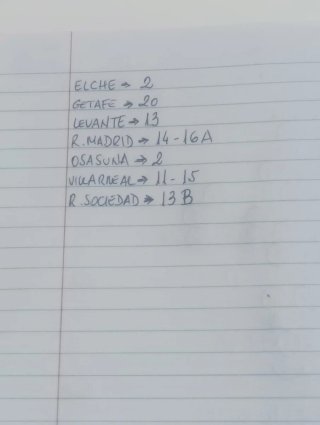 ELCHE → 2
GETAFE → 20
LEVANTE → 13
R. MADRID → 14-16A
OSASUNA → 2
VILLARREAL → 11-15
R. SOCIEDAD → 13 B